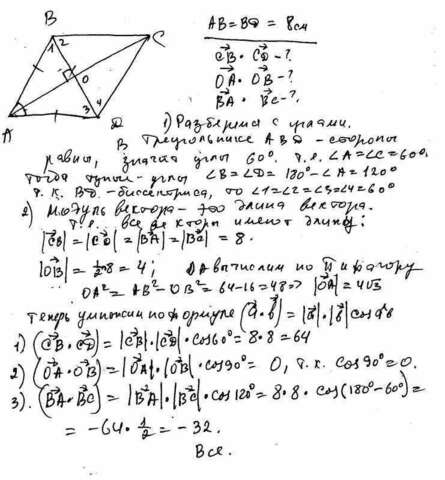 B
C
A
D
O
1 2
3 4
AB = BD = 8см
CB · CD - ?
OA · OB - ?
BA · BC - ?
1) Разберемся с углами.
В треугольнике ABD - стороны
равны, значит углы 60°. т.е. ∠A=∠C=60°.
тогда тупые - углы ∠B=∠D= 180°-∠A=120°
т.к. BD - биссектриса, то ∠1=∠2=∠3=∠4=60°
2) Модуль вектора - это длина вектора.
т.е. все векторы имеют длину:
|CB| = |CD| = |BA| = |BC| = 8.
|OB| = 1/2·8 = 4; OA вычислим по Пифагору
OA² = AB² - OB² = 64-16=48 => |OA| = 4√3
Теперь умножим по формуле (a·b) = |a|·|b| cos a^b
1) (CB·CD) = |CB|·|CD|·cos60° = 8·8 = 64
2) (OA·OB) = |OA|·|OB|·cos90° = 0, т.к. cos90°=0.
3). (BA·BC) = |BA|·|BC|·cos120° = 8·8·cos(180°-60°)=
= -64·1/2 = -32.
Все.